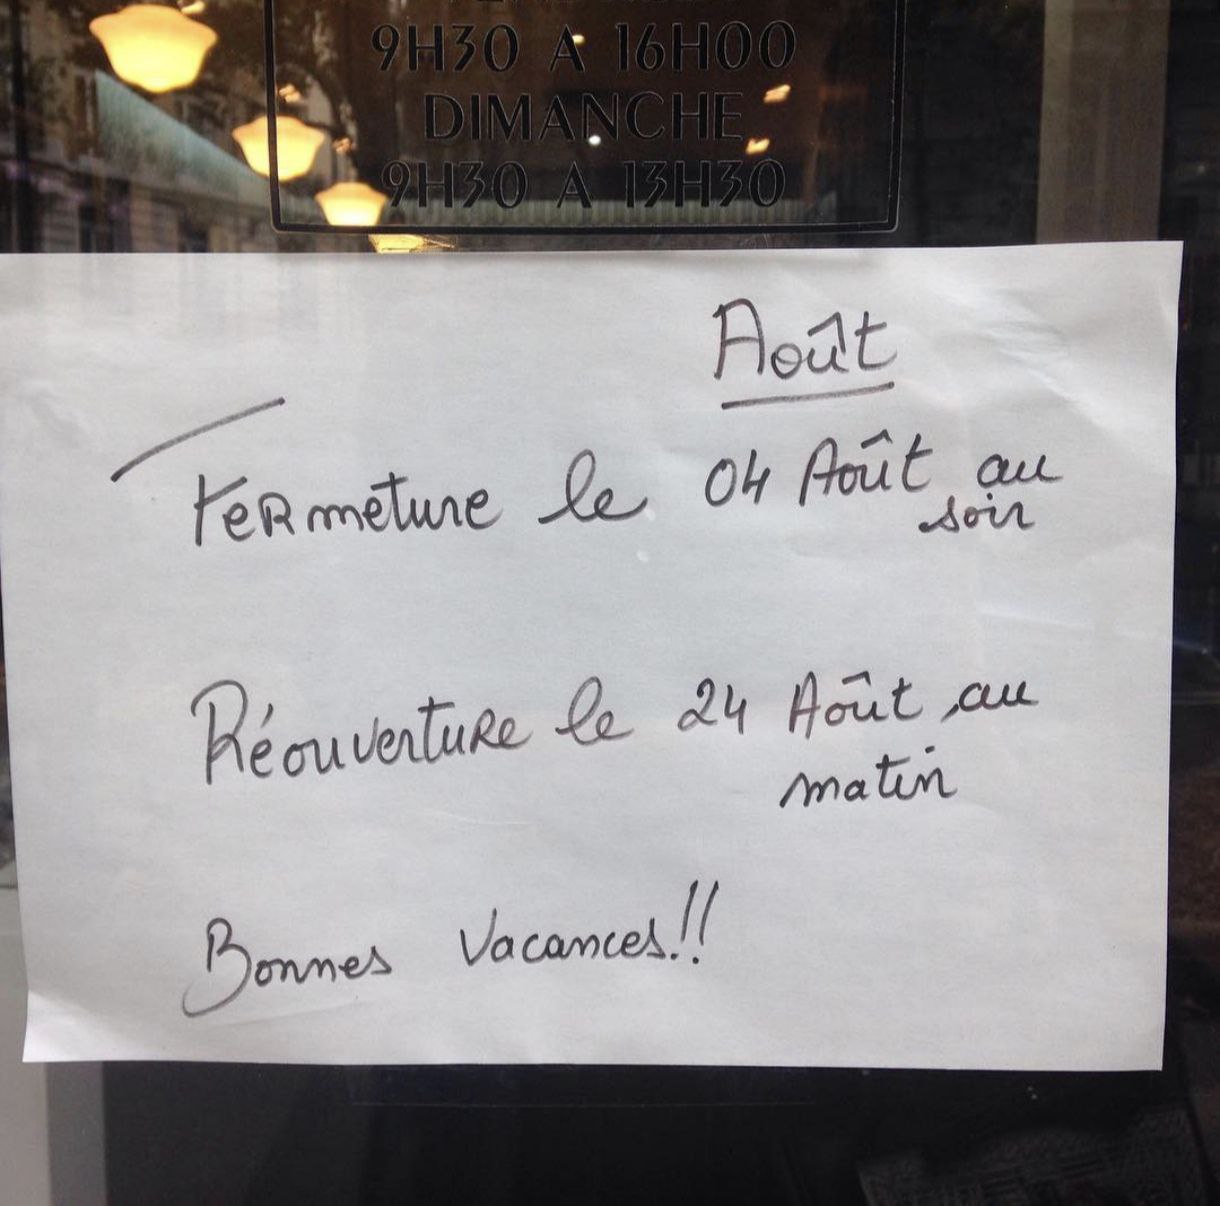 9H30 A 16H00
DIMANCHE
9H30 A 13H30
Août
Fermeture le 04 Août au
soir
Réouverture le 24 Août au
matin
Bonnes Vacances!!